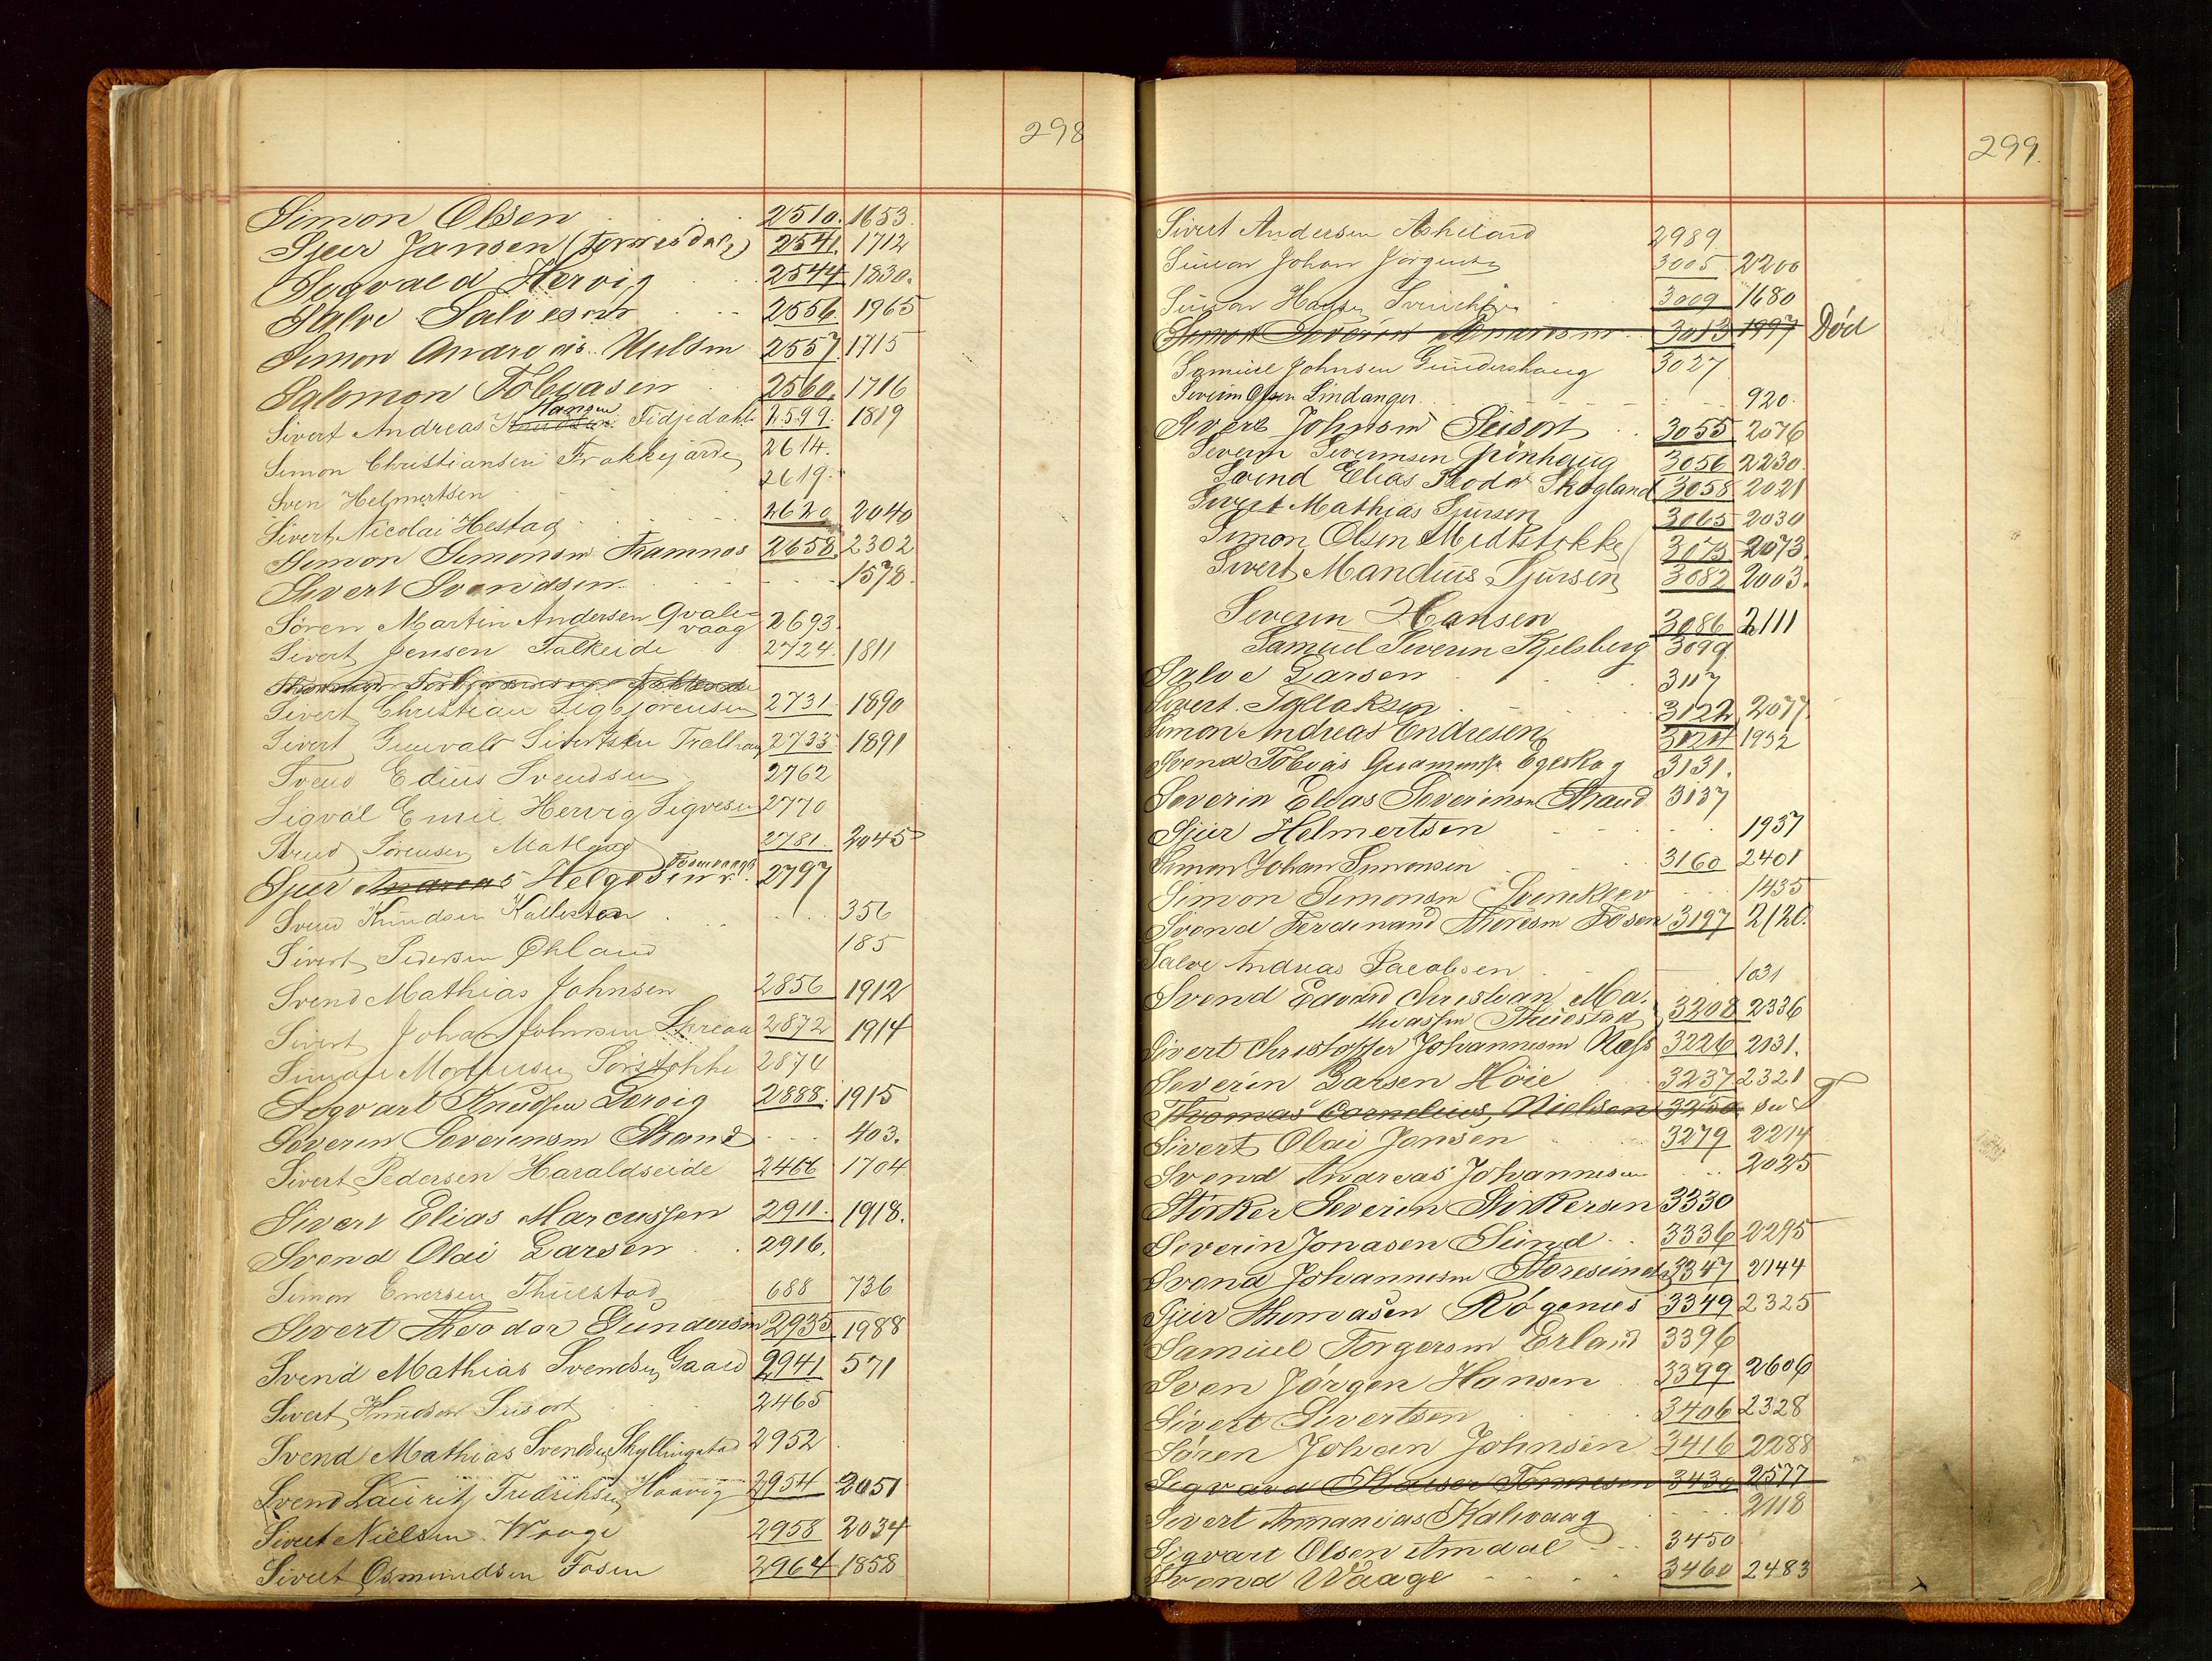 298
Simon Olsen 2510. 1653.
Sjur Jansen (Tonnesdal) 2541. 1712
Sigvald Hervig 2544 1830.
Salve Salvesen 2556. 1965
Simon Andreas Nielsen 2557. 1715
Salomon Tobiasen 2560. 1716
Hansen
Sivert Andreas Knudsen Tidjedahl 2599. 1819
Simon Christiansen 2614.
Sven Helmertsen 2619.
Sivert Nicolai Hestad 2620 2040
Simon Simonsen Framnæs 2658. 2302
Sivert Svendsen 1578.
Søren Martin Andersen Qvale- 2693.
vaag
Sivert Jensen Falkeide 2724. 1811
Sivert Christian Sigbjørensen 2731. 1890
Sivert Gunvald Sivertsen 2733 1891
Svend Edius Svendsen 2762
Sigval Emil Hervig Sigvesen 2770
Svend Sørensen Matland 2781. 2045
Sjur Andreas Helgesen 2797
Svend Knudsen Kallestad 356
Sivert Pedersen Økland 185
Svend Mathias Johnsen 2856 1912
Sivert Johan Johnsen 2872 1914
Simon Mortensen Sørstokke 2874
Sigvart Knudsen Lervig 2888. 1915
Severin Severinsen Strand 403.
Sivert Pedersen Haraldseide 2466 1704
Sivert Elias Marcussen 2911. 1918.
Svend Olai Larsen 2916.
Simon Enersen Thuestad 688 736
Sivert Theodor Gundersen 2935 1988
Svend Mathias Svendsen Gaard 2941 571
Sivert Knudsen Seisort 2465
Svend Mathias Svendsen Skyllingstad 2952
Svend Lauritz Fredriksen Haavig 2954 2051
Sivert Nielsen Waage 2958 2034
Sivert Osmundsen Fosen 2964 1858
299.
Sivert Andersen Askeland 2989
Simon Johan Jørgensen 3005 2200
Simon Hansen 3009 1680
Simon Severin 3013 1997 Død
Samuel Johnsen Gundershaug 3027
Severin Olsen Lindanger 920.
Sivert Johnsen Seisort 3055 2076
Severin Severinsen Grønhaug 3056 2230.
Svend Elias Skogland 3058 2021
Sivert Mathias Sjursen 3065 2030
Simon Olsen Midtstokke 3073 2073.
Sivert Mandius Sjursen 3082 2003.
Severin Hansen 3086 2111
Samuel Severin Kjelsberg 3099
Salve Larsen 3117
Sivert Tallaksen 3122 2077.
Simon Andreas Endresen 3124 1932
Svend Tobias Egeskog 3131.
Severin Elias Severinsen Strand 3137
Sjur Helmertsen 1937
Simon Johan Simonsen 3160 2401
Simon Simonsen 1435
Svend Ferdinand Thoresen Fosen 3197 2120.
Salve Andreas Jacobsen 1031
Svend Edvard Christian Ma- 3208 2336
thiassen Thuestad
Sivert Christoffer Johannesen Næss 3226 2131.
Severin Larsen Høie 3237 2321
Thomas Cornelius Nielsen 3250 see T
Sivert Olai Jonsen 3279 2214
Svend Andreas Johannesen 2025
Størker Severin Størkersen 3330
Severin Jonasen Sund 3336 2295
Svend Johannesen Storesund 3347 2144
Sjur Thomasen Røgenes 3349 2325
Samuel Torgersen Erland 3396
Sven Jørgen Hansen 3399 2606
Sivert Sivertsen 3406 2328
Søren Johan Johnsen 3416 2288
Sigvard Tønnesen 3430 2577
Sivert Ananias Kalvaag 2118
Sigvart Olsen Amdal 3450
Svend Waage 3460 2483